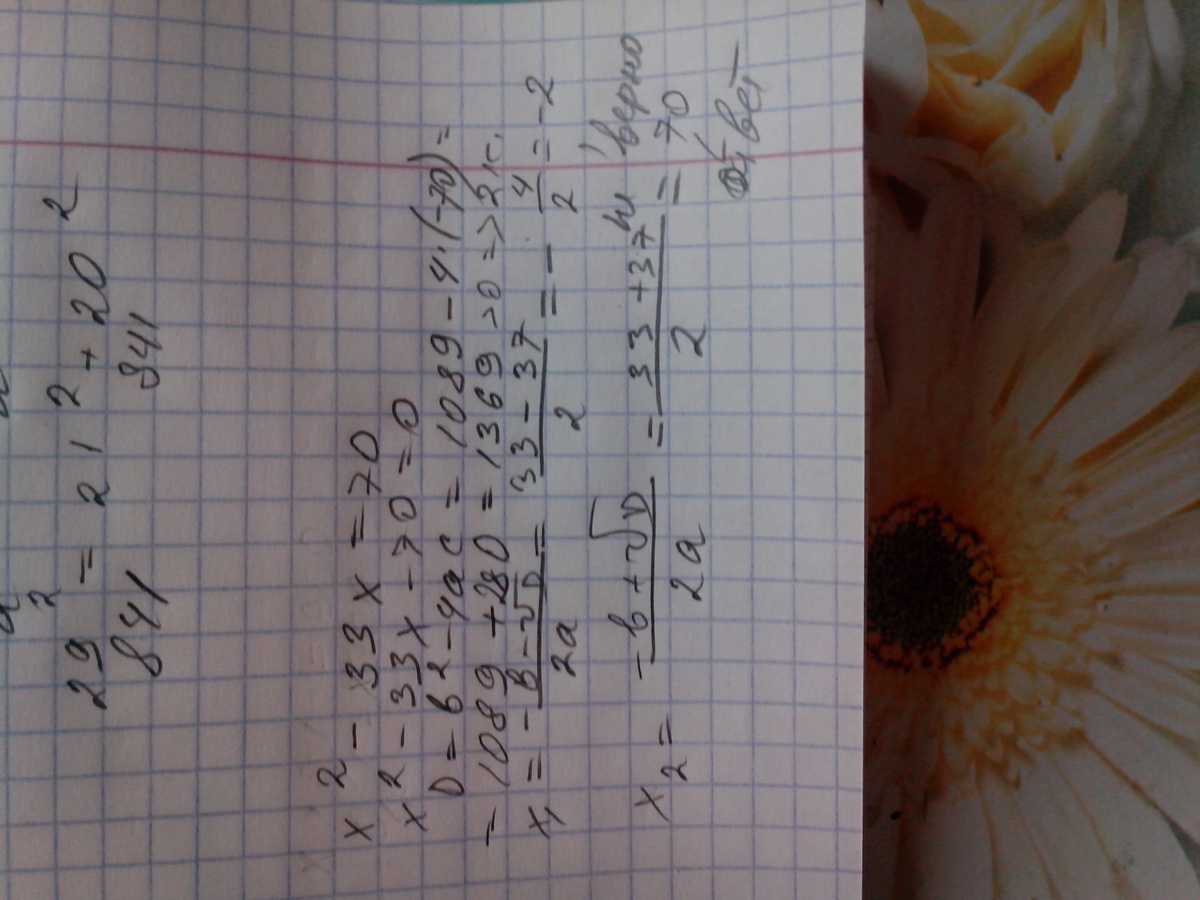 29² = 21² + 20²
841 841
x² - 33x = 70
x² - 33x - 70 = 0
D = в² - 4ac = 1089 - 4·(-70) =
= 1089 + 280 = 1369 > 0 => 2 к.
x₁ = -в-√D / 2a = 33-37 / 2 = - 4/2 = -2
верно
x₂ = -в+√D / 2a = 33+37 / 2 = 70
ответ